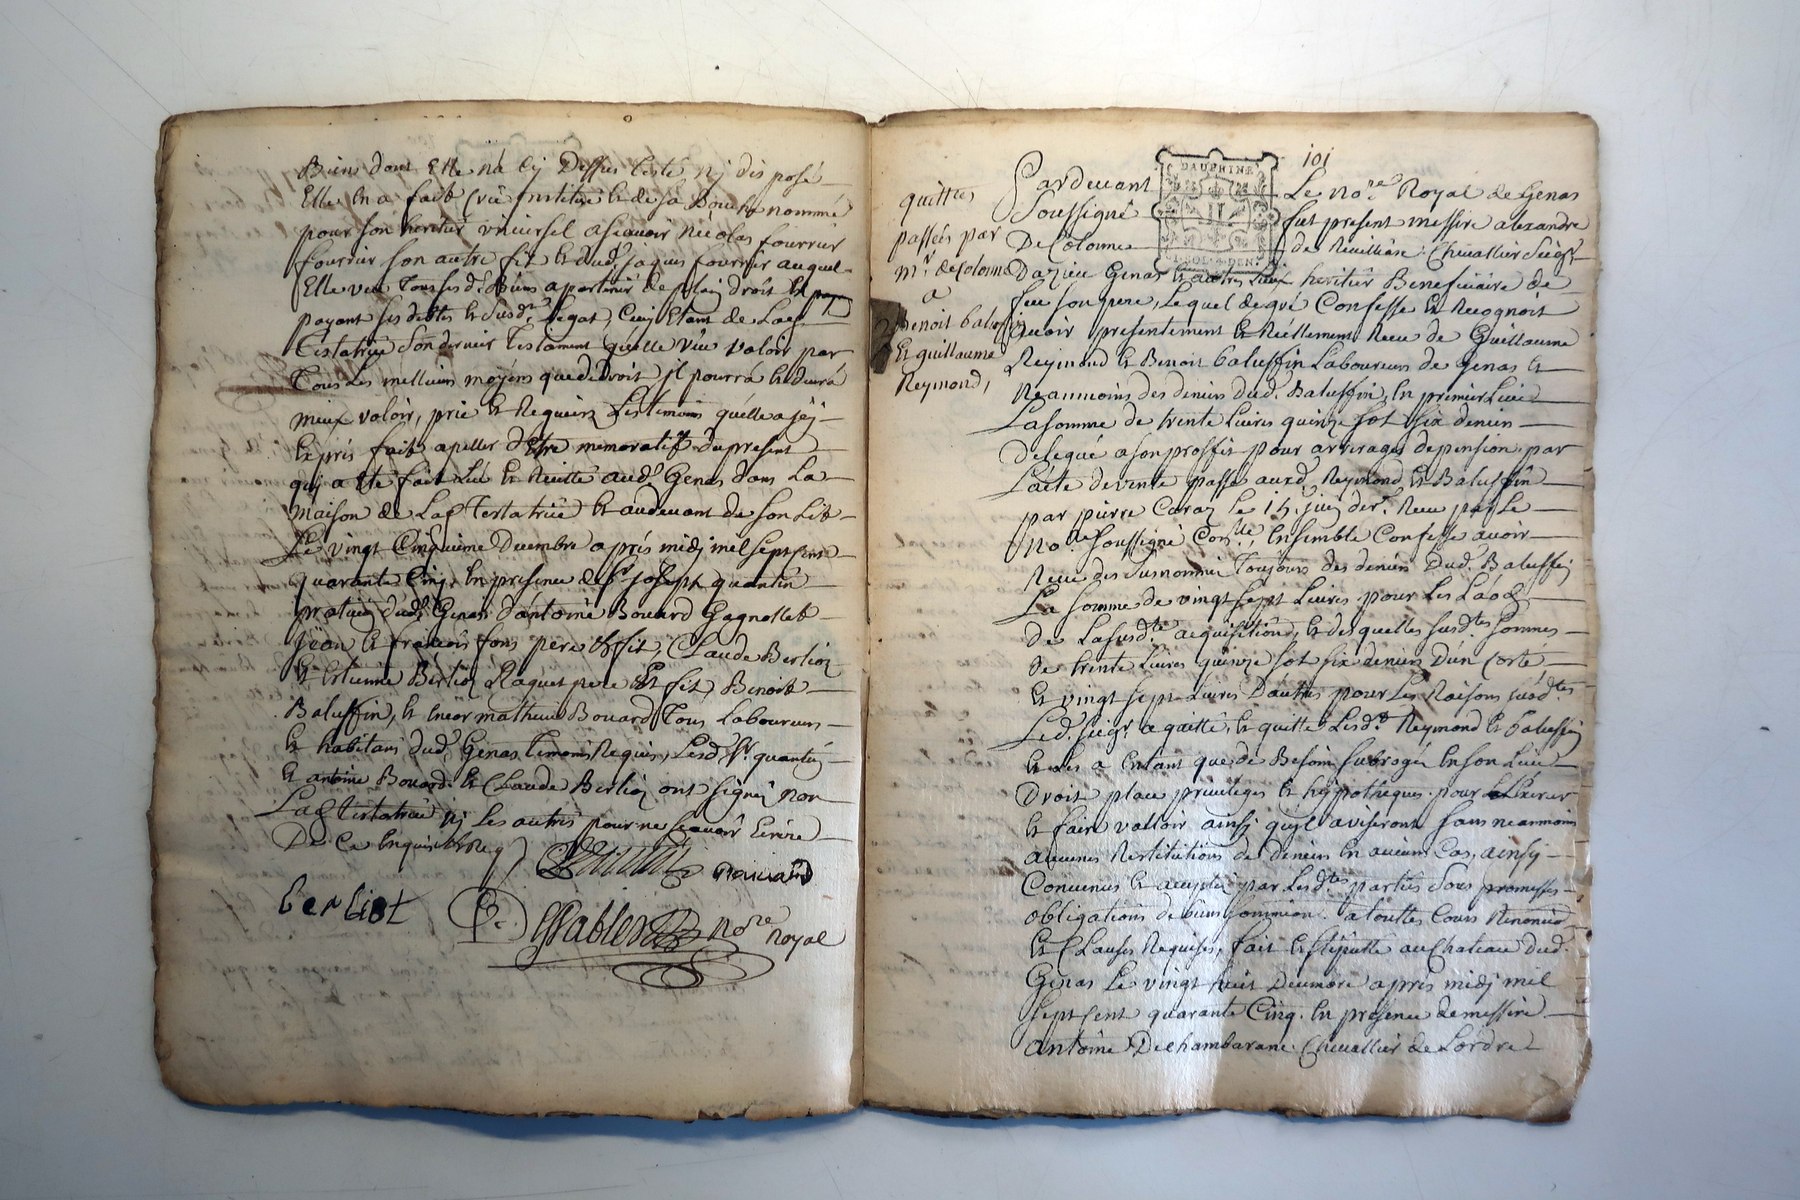 Biens dont Elle na Cy Dessus testé, ny disposé
Elle en a fait Crée Institue et de sa Bouche nommé
pour son heritier universel a scavoir Nicolas fourrier
fourrier son autre fit et dud. Jaques fourrier auquel
Elle veu Tous ses d. Biens apartenir de plein droit En
payant ses debtes et susd. Legat, Cecy Etant de Lad.
Testatrice Son dernier Testament quelle veu valoir par
Tous Les melliurs moyens que de Droit jl pourra et devra
mieux valoir, prie et Requiers Les temoins quelle a jcy
Et prés fait apeller d'Etre memoratif du present
quy a été fait Leu et Recitté aud. Genas dans La
maison de Lad Testatrice et audevant de son Lit
Le vingt Cinquieme Decembre aprés midy mil sept cent
quarante Cinq, En presence de Sr Joseph quantin
praticien dud. Genas d'antoine Bouard Gagnollet
Jean et francois fons pere et fit, Claude Berlioz
Et Estienne Berlioz Raquet pere Et fit, Benoit
Baluffin, et Encor mathieu Bouard Tous Laboureurs
Et habitans dud. Genas temoins Requis, Lesd. Sr. quantin
Et antoine Bouard et Claude Berlioz ont signés non
Lad Testatrice ny Les autres pour ne scavoir Ecrire
De Ce Enquis et Req
Bouard
berliot
No.re Royal
101
DAUPHINÉ
quittes
passées par
mr. de Colonne
a
Benoit baluffin
Et guillaume
Reymond,
Pardevant Le No.re Royal de Genas
Soussigné fut present messire alexandre
De Colonne de Revilliase Chevallier Seigr
Dazieu Genas et autres Lieux heritier Beneficiaire de
feu son pere, Lequel de gré Confesse Et Recognoit
avoir presentement Et Réellement Receu de Guillaume
Reymond Et Benoit baluffin Laboureurs de Genas Et
Neanmoins des deniers dud. Baluffin, En premier Lieu
La somme de trente Livres quinze sol six deniers
delegué a son proffit pour arrerages de pension par
L'acte de vente passé aux d. Reymond Et Baluffin
par pierre Caraz le 15. juin der. Receu par Le
No.re soussigné Con.lle, Ensemble Confesse avoir
Receu des susnommés Toujours des deniers dud. Baluffin
La somme de vingt sept Livres pour Les Laods
de La susd.te acquisition, Et desquelles susd.tes sommes
de trente Livres quinze sol six deniers d'un Coté
Et vingt sept Livres D'autres pour Les Raisons susd.tes
Led. seigr. a quitté, Et quitte Lesd. Reymond Et baluffin
Et Les a Entant que de Besoin subrogés En son Lieu
Droit place privileges Et hypotheques pour Exercer
Et faire valloir ainsy quils aviseront sans neanmoins
aucunes Restitutions de deniers En aucun Cas, ainsy
Convenus Et acceptés par Lesd.tes parties sous promesses
obligations de biens soumissions a touttes Cours Renoncia.
Et Clauses Requises, fait Et stipullé au Chateau dud.
Genas Le vingt huit Decembre aprés midy mil
sept Cent quarante Cinq. En presence de messire
antoine De Chambarane Chevallier de L'ordre